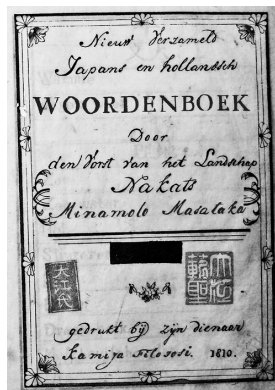 Nieuw Verzameld
Japans en hollandsch
WOORDENBOEK
Door
den Vorst van het Landschap
Nakats
Minamolo Masalaka
大江氏
gedrukt bij zijn dienaar
Kamija Filososi. 1810.